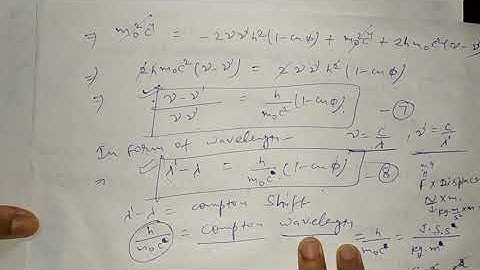 ⇒ m₀²c⁴ = -2νν'h²(1-cosϕ) + m₀²c⁴ + 2hm₀c²(ν-ν')
⇒ 2hm₀c²(ν-ν') = 2νν'h²(1-cosϕ)
⇒ (ν-ν')/νν' = h/m₀c² (1-cosϕ) —⑦
In form of wavelength— ν = c/λ , ν' = c/λ'
⇒ λ'-λ = h/m₀c (1-cosϕ) —⑧
λ'-λ = compton shift
h/m₀c = compton wavelength = h/m₀c = J.S.s
F x Displac